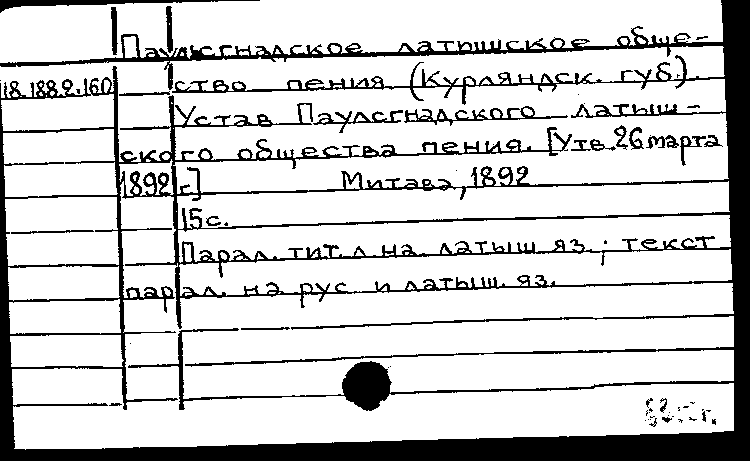 Паульсгнадское латышское обще-
18.188.2.160 ство пения (Курляндск. губ.).
Устав Паулсгнадского латыш-
ского общества пения. [Утв. 26 марта
1892 г.] Митава, 1892
15 с.
Парал. тит. л. на латыш. яз.; текст
парал. на рус и латыш. яз.